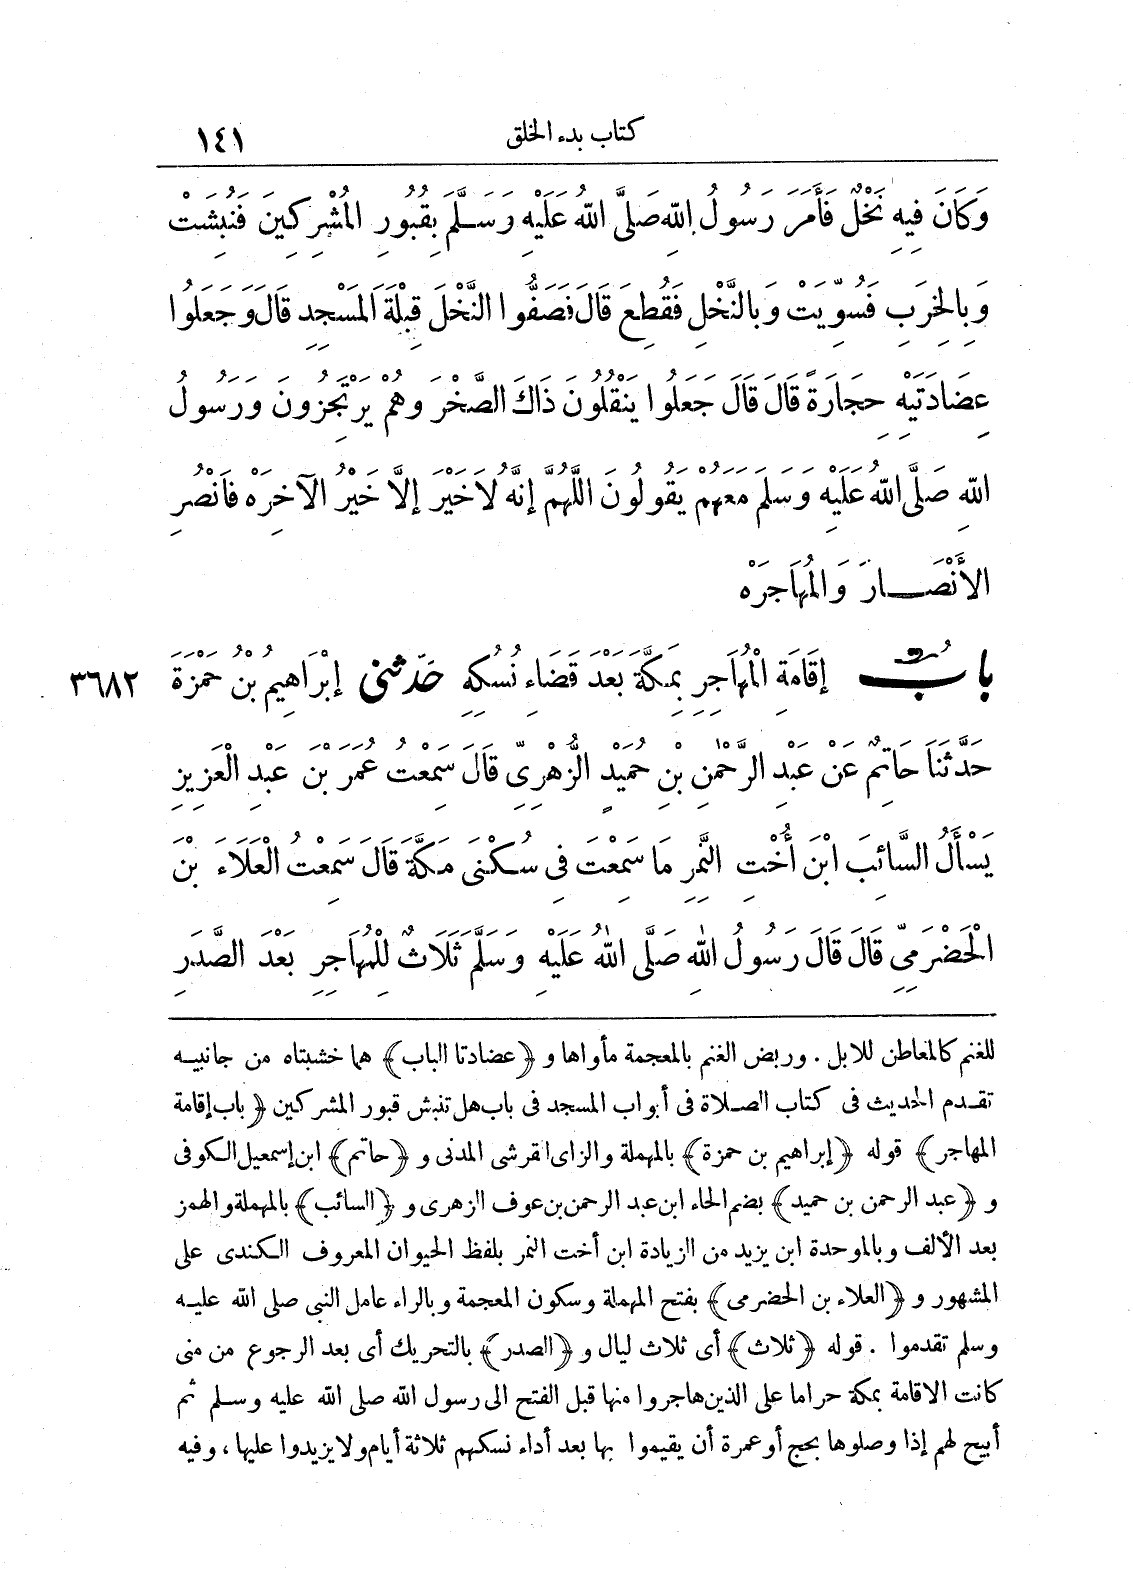 كتاب بدء الخلق ١٤١
وَكَانَ فِيهِ نَخْلٌ فَأَمَرَ رَسُولُ اللهِ صَلَّى اللهُ عَلَيْهِ وَسَلَّمَ بِقُبُورِ الْمُشْرِكِينَ فَنُبِشَتْ
وَبِالْخِرَبِ فَسُوِّيَتْ وَبِالنَّخْلِ فَقُطِعَ قَالَ فَصَفُّوا النَّخْلَ قِبْلَةَ الْمَسْجِدِ قَالَ وَجَعَلُوا
عِضَادَتَيْهِ حِجَارَةً قَالَ قَالَ جَعَلُوا يَنْقُلُونَ ذَاكَ الصَّخْرَ وَهُمْ يَرْتَجِزُونَ وَرَسُولُ
اللهِ صَلَّى اللهُ عَلَيْهِ وَسَلَّمَ مَعَهُمْ يَقُولُونَ اللَّهُمَّ إِنَّهُ لَا خَيْرَ إِلَّا خَيْرُ الآخِرَهْ فَانْصُرِ
الأَنْصَارَ وَالْمُهَاجِرَهْ
بابُ إِقَامَةِ الْمُهَاجِرِ بِمَكَّةَ بَعْدَ قَضَاءِ نُسُكِهِ حَدَّثَنِى إِبْرَاهِيمُ بْنُ حَمْزَةَ ٣٦٨٢
حَدَّثَنَا حَاتِمٌ عَنْ عَبْدِ الرَّحْمٰنِ بْنِ حُمَيْدٍ الزُّهْرِىِّ قَالَ سَمِعْتُ عُمَرَ بْنَ عَبْدِ الْعَزِيزِ
يَسْأَلُ السَّائِبَ ابْنَ أُخْتِ النَّمِرِ مَا سَمِعْتَ فِى سُكْنَى مَكَّةَ قَالَ سَمِعْتُ الْعَلَاءَ بْنَ
الْحَضْرَمِىِّ قَالَ قَالَ رَسُولُ اللهِ صَلَّى اللهُ عَلَيْهِ وَسَلَّمَ ثَلَاثٌ لِلْمُهَاجِرِ بَعْدَ الصَّدَرِ
للغنم كالمعاطن للابل . وربض الغنم بالمعجمة مأواها و ﴿عضادتا الباب﴾ هما خشبتاه من جانبيه
تقدم الحديث فى كتاب الصلاة فى أبواب المسجد فى باب هل تنبش قبور المشركين ﴿باب إقامة
المهاجر﴾ قوله ﴿إبراهيم بن حمزة﴾ بالمهملة والزاى القرشى المدنى و ﴿حاتم﴾ ابن إسمعيل الكوفى
و ﴿عبد الرحمن بن حميد﴾ بضم الحاء ابن عبد الرحمن بن عوف الزهرى و ﴿السائب﴾ بالمهملة والهمز
بعد الألف وبالموحدة ابن يزيد من الزيادة ابن أخت النمر بلفظ الحيوان المعروف الكندى على
المشهور و ﴿العلاء بن الحضرمى﴾ بفتح المهملة وسكون المعجمة وبالراء عامل النبى صلى الله عليه
وسلم تقدموا . قوله ﴿ثلاث﴾ أى ثلاث ليال و ﴿الصدر﴾ بالتحريك أى بعد الرجوع من منى
كانت الاقامة بمكة حراما على الذين هاجروا منها قبل الفتح الى رسول الله صلى الله عليه وسلم ثم
أبيح لهم إذا وصلوها بحج أو عمرة أن يقيموا بها بعد أداء نسكهم ثلاثة أيام ولا يزيدوا عليها ، وفيه